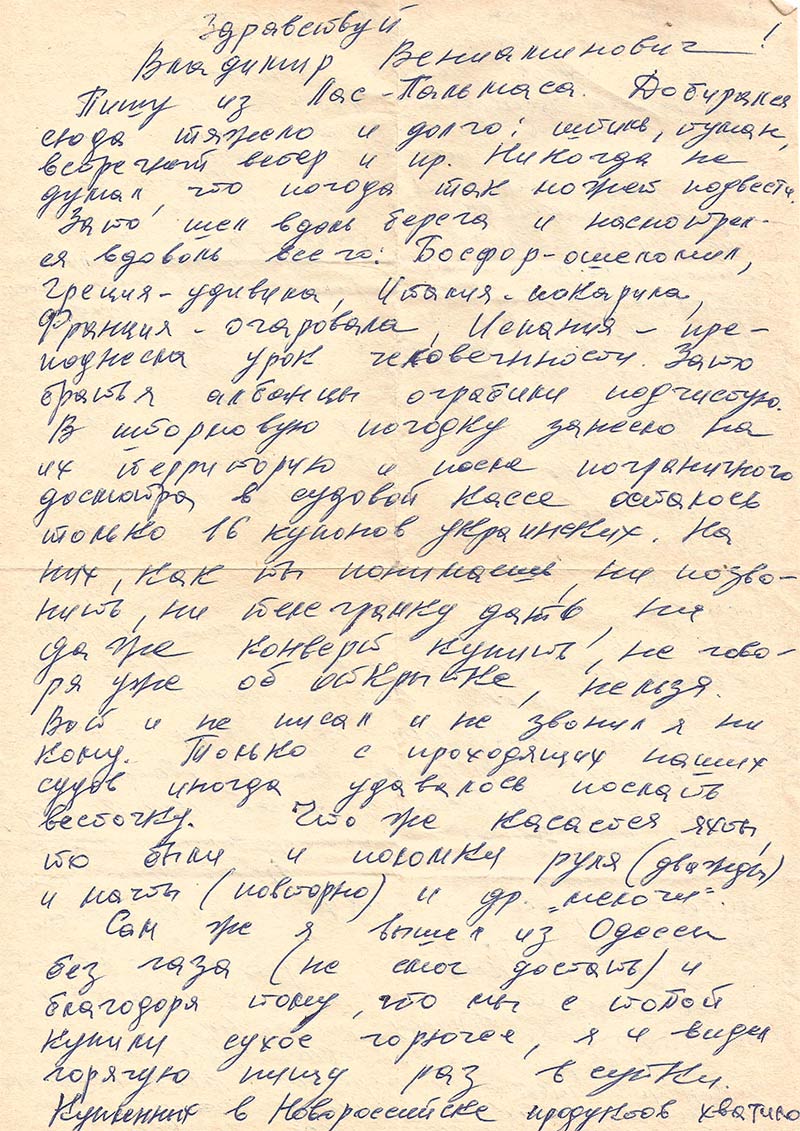 Здравствуй
Владимир Вениаминович!
Пишу из Лас-Пальмаса. Добирался
сюда тяжело и долго: штиль, туман,
встречный ветер и пр. Никогда не
думал, что погода так может подвести.
Зато шел вдоль берега и насмотрел-
ся вдоволь всего: Босфор-ошеломил,
Греция-удивила, Италия-покорила,
Франция-очаровала, Испания-пре-
поднесла урок человечности. Зато
братья албанцы ограбили подчистую.
В штормовую погодку занесло на
их территорию и после пограничного
досмотра в судовой кассе осталось
только 16 купонов украинских. На
них, как ты понимаешь, ни позво-
нить, ни телеграмку дать, ни
даже конверт купить, не гово-
ря уже об открытке, нельзя.
Вот и не писал и не звонил я ни
кому. Только с проходящих наших
судов иногда удавалось послать
весточку. Что же касается яхты,
то были и поломки руля (дважды)
и мачты (повторно) и др. "мелочи".
Сам же я вышел из Одессы
без газа (не смог достать) и
благодоря тому, что мы с тобой
купили сухое горючее, я и видел
горячую пищу раз в сутки.
Купленных в Новороссийске продуктов хватило